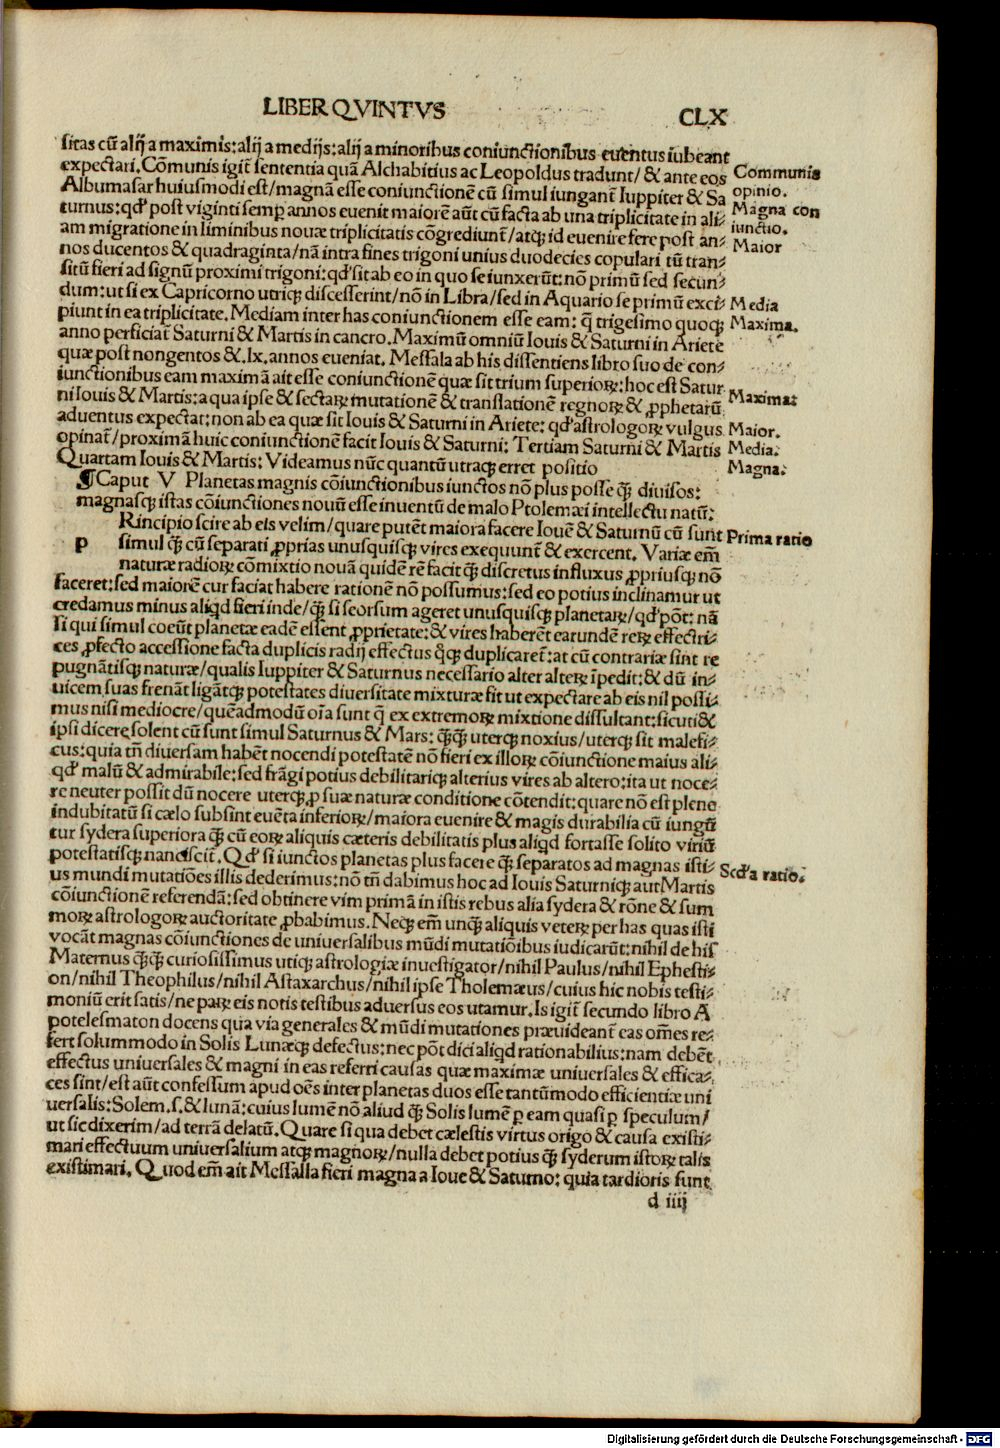 LIBER QVINTVS
CLX
sitas cū alij a maximis: alij a medijs: alij a minoribus coniunctionibus euentus iubeant
expectari. Cōmunis igit̄ sententia quā Alchabitius ac Leopoldus tradunt/ & ante eos
Albumasar huiusmodi est/ magnā esse coniunctionē cū simul iungant̄ Iuppiter & Sa
turnus: qd̓ post viginti semꝑ annos euenit maiorē aūt cū facta ab una triplicitate in ali⸗
am migratione in liminibus nouæ triplicitatis cōgrediunt̄/ atqꝫ id euenire fere post an⸗
nos ducentos & quadraginta/ nā intra fines trigoni unius duodecies copulari tū tran⸗
sitū fieri ad signū proximi trigoni: qd̓ sit ab eo in quo se iunxerūt: nō primū sed secun⸗
dum: ut si ex Capricorno utriqꝫ discesserint/ nō in Libra/ sed in Aquario se primū exci⸗
piunt in ea triplicitate. Mediam inter has coniunctionem esse eam: q̄ trigesimo quoqꝫ
anno perficiat̄ Saturni & Martis in cancro. Maximū omniū Iouis & Saturni in Ariete
quæ post nongentos &. lx. annos eueniat. Messala ab his dissentiens libro suo de con⸗
iunctionibus eam maximā ait esse coniunctionē quæ sit trium superioꝝ: hoc est Satur
ni Iouis & Martis: a qua ipse & sectaꝝ mutationē & translationē regnoꝝ & ꝓphetarū
aduentus expectat: non ab ea quæ sit Iouis & Saturni in Ariete: qd̓ astrologoꝝ vulgus
opinat̄/ proximā huic coniunctionē facit Iouis & Saturni: Tertiam Saturni & Martis
Quartam Iouis & Martis: Videamus nūc quantū utraqꝫ erret positio
¶Caput V Planetas magnis cōiunctionibus iunctos nō plus posse q̄ꝫ diuisos:
magnasqꝫ istas cōiunctiones nouū esse inuentū de malo Ptolemæi intellectu natū:
p Rincipio scire ab eis velim/ quare putēt maiora facere Iouē & Saturnū cū sunt
simul q̄ꝫ cū separati ꝓprias unusquisqꝫ vires exequunt̄ & exercent. Variæ em̄
naturæ radioꝝ cōmixtio nouā quidē rē facit q̄ꝫ discretus influxus ꝓpriusqꝫ nō
faceret: sed maiorē cur faciat habere rationē nō possumus: sed eo potius inclinamur ut
credamus minus aliqd fieri inde/ q̄ꝫ si seorsum ageret unusquisqꝫ planetaꝝ/ qd̓ pōt: nā
si qui simul coeūt planetæ eadē essent ꝓprietate: & vires haberēt earundē reꝝ effectri⸗
ces ꝓfecto accessione facta duplicis radij effectus q̊qꝫ duplicaret̄: at cū contrariæ sint re
pugnātisqꝫ naturæ/ qualis Iuppiter & Saturnus necessario alter alteꝝ īpedit: & dū in⸗
uicem suas frenāt ligātqꝫ potestates diuersitate mixturæ fit ut expectare ab eis nil possi⸗
mus nisi mediocre/ quēadmodū oīa sunt q̄ ex extremoꝝ mixtione dissultant: sicuti &
ipsi dicere solent cū sunt simul Saturnus & Mars: q̄ꝫq̄ꝫ uterqꝫ noxius/ uterqꝫ sit malefi⸗
cus: quia tn̄ diuersam habēt nocendi potestatē nō fieri ex illoꝝ cōiunctione maius ali⸗
qd̓ malū & admirabile: sed frāgi potius debilitariqꝫ alterius vires ab altero: ita ut noce⸗
re neuter possit dū nocere uterqꝫ ꝓ suæ naturæ conditione cōtendit: quare nō est plene
indubitatū si cælo subsint euēta inferioꝝ/ maiora euenire & magis durabilia cū iungū
tur sydera superiora q̄ꝫ cū eoꝝ aliquis cæteris debilitatis plus aliqd fortasse solito viriū
potestatisqꝫ nanciscit̄. Qd̓ si iunctos planetas plus facere q̄ꝫ separatos ad magnas isti⸗
us mundi mutatiōes illis dederimus: nō tn̄ dabimus hoc ad Iouis Saturniqꝫ aut Martis
cōiunctionē referendā: sed obtinere vim primā in istis rebus alia sydera & rōne & sum
moꝝ astrologoꝝ auctoritate ꝓbabimus. Neqꝫ em̄ unq̄ꝫ aliquis veteꝝ per has quas isti
vocāt magnas cōiunctiones de uniuersalibus mūdi mutatiōibus iudicarūt: nihil de his
Maternus q̄ꝫq̄ꝫ curiosissimus utiqꝫ astrologiæ inuestigator/ nihil Paulus/ nihil Ephesti⸗
on/ nihil Theophilus/ nihil Astaxarchus/ nihil ipse Tholemæus/ cuius hic nobis testi⸗
moniū erit satis/ ne paꝝ eis notis testibus aduersus eos utamur. Is igit̄ secundo libro A
potelesmaton docens qua via generales & mūdi mutationes præuideant̄ eas om̄es re⸗
fert solummodo in Solis Lunæqꝫ defectus: nec pōt dici aliqd rationabilius: nam debēt
effectus uniuersales & magni in eas referri causas quæ maximæ uniuersales & effica⸗
ces sint/ est aūt confessum apud oēs inter planetas duos esse tantūmodo efficientiæ uni
uersalis: Solem. s. & lunā: cuius lumē nō aliud q̄ꝫ Solis lumē ꝑ eam quasi ꝑ speculum/
ut sic dixerim/ ad terrā delatū. Quare si qua debet cælestis virtus origo & causa existi⸗
mari effectuum uniuersalium atqꝫ magnoꝝ/ nulla debet potius q̄ꝫ syderum istoꝝ talis
existimari. Quod em̄ ait Messalla fieri magna a Ioue & Saturno: quia tardioris sunt
d iiij
Communis
opinio.
Magna con
iunctio.
Maior
Media
Maxima.
Maxima:
Maior.
Media:
Magna:
Prima ratio
Scd̓a ratio.
Digitalisierung gefördert durch die Deutsche Forschungsgemeinschaft - DFG